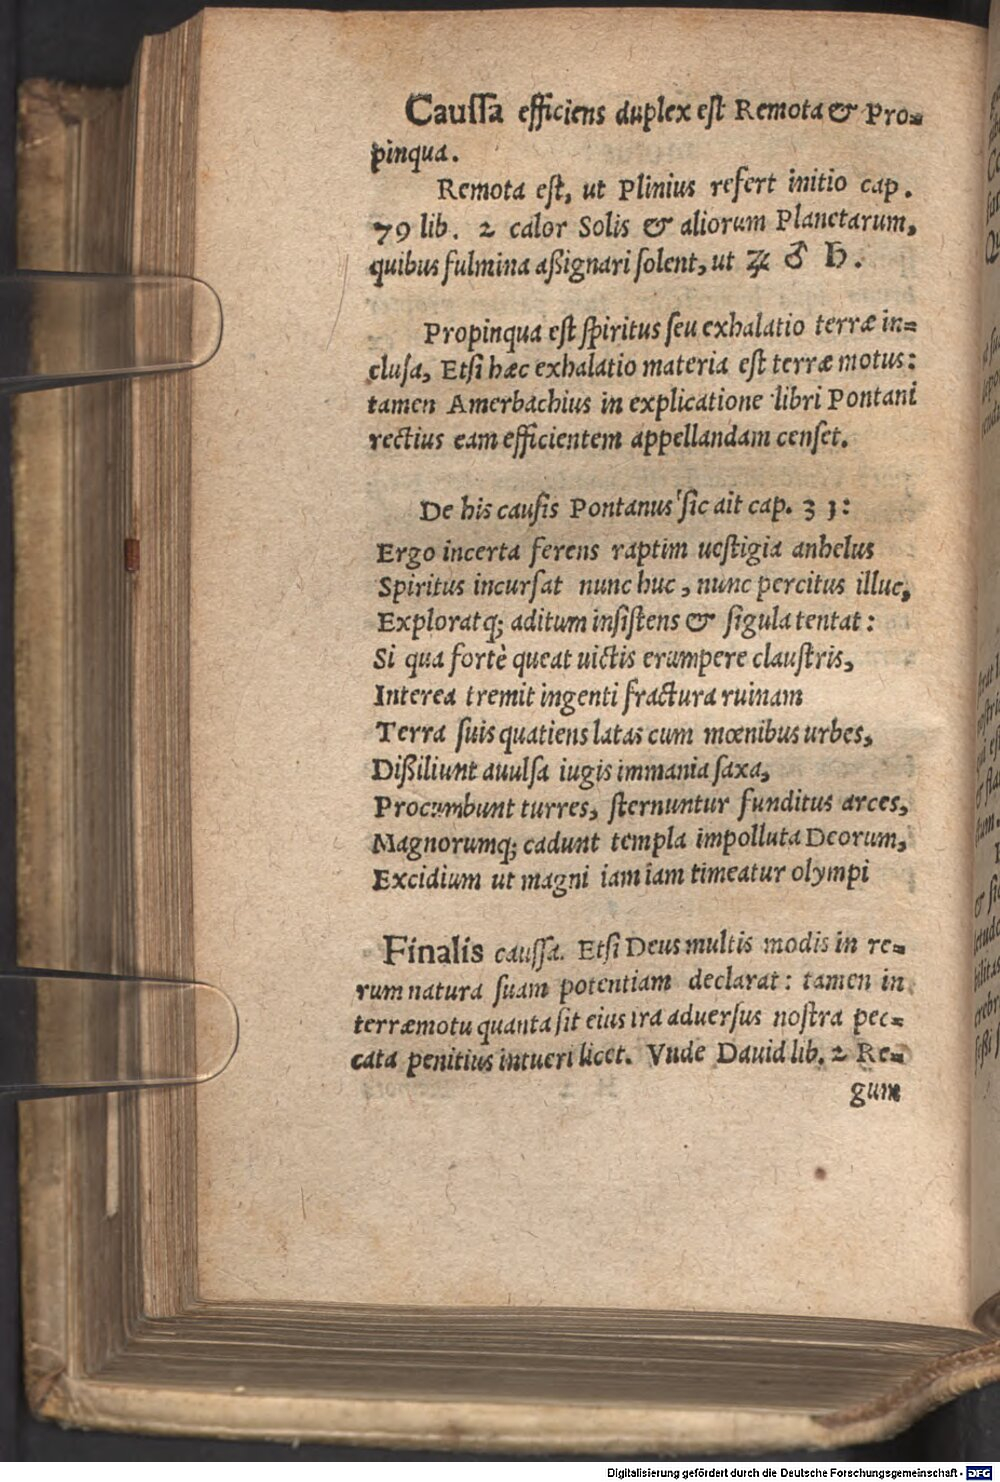 Caussa efficiens duplex est Remota & Pro=
pinqua.
Remota est, ut Plinius refert initio cap.
79 lib. 2 calor Solis & aliorum Planetarum,
quibus fulmina aßignari solent, ut ♃ ♂ ♄.
Propinqua est spiritus seu exhalatio terræ in=
clusa, Etsi hæc exhalatio materia est terræ motus:
tamen Amerbachius in explicatione libri Pontani
rectius eam efficientem appellandam censet.
De his causis Pontanus sic ait cap. 31:
Ergo incerta ferens raptim uestigia anhelus
Spiritus incursat nunc huc, nunc percitus illuc,
Exploratq; aditum insistens & sigula tentat:
Si qua fortè queat uictis erumpere claustris,
Interea tremit ingenti fractura ruinam
Terra suis quatiens latas cum mœnibus urbes,
Dißiliunt auulsa iugis immania saxa,
Procumbunt turres, sternuntur funditus arces,
Magnorumq; cadunt templa impolluta Deorum,
Excidium ut magni iam iam timeatur olympi
Finalis caussa. Etsi Deus multis modis in re=
rum natura suam potentiam declarat: tamen in
terræmotu quanta sit eius ira aduersus nostra pec=
cata penitius intueri licet. Vnde Dauid lib. 2 Re=
gum
Digitalisierung gefördert durch die Deutsche Forschungsgemeinschaft - DFG